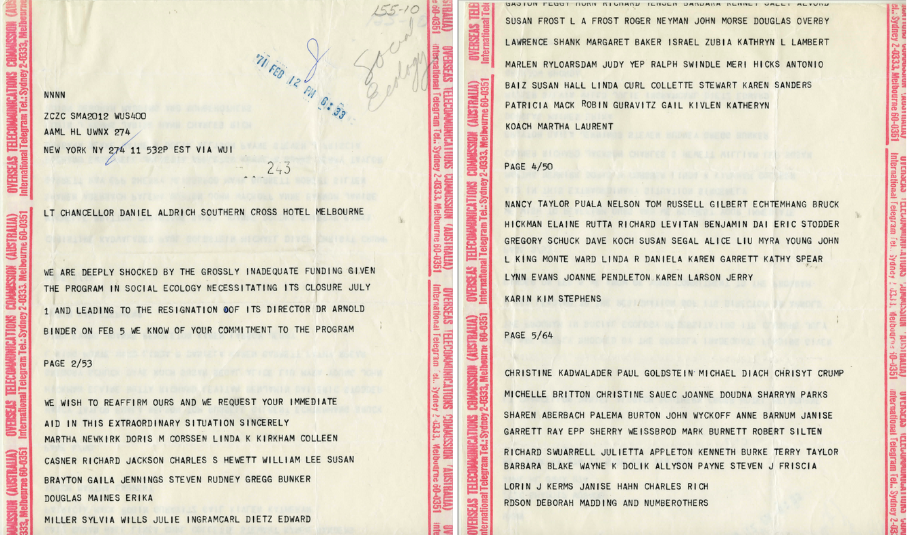 155-10
Social
Ecology
'71 FEB 12 PM 6:33
NNNN
ZCZC SMA2012 WUS400
AAML HL UWNX 274
NEW YORK NY 274 11 532P EST VIA WUI
243
LT CHANCELLOR DANIEL ALDRICH SOUTHERN CROSS HOTEL MELBOURNE
WE ARE DEEPLY SHOCKED BY THE GROSSLY INADEQUATE FUNDING GIVEN
THE PROGRAM IN SOCIAL ECOLOGY NECESSITATING ITS CLOSURE JULY
1 AND LEADING TO THE RESIGNATION OOF ITS DIRECTOR DR ARNOLD
BINDER ON FEB 5 WE KNOW OF YOUR COMMITMENT TO THE PROGRAM
PAGE 2/53
WE WISH TO REAFFIRM OURS AND WE REQUEST YOUR IMMEDIATE
AID IN THIS EXTRAORDINARY SITUATION SINCERELY
MARTHA NEWKIRK DORIS M CORSSEN LINDA K KIRKHAM COLLEEN
CASNER RICHARD JACKSON CHARLES S HEWETT WILLIAM LEE SUSAN
BRAYTON GAILA JENNINGS STEVEN RUDNEY GREGG BUNKER
DOUGLAS MAINES ERIKA
MILLER SYLVIA WILLS JULIE INGRAMCARL DIETZ EDWARD
OVERSEAS TELECOMMUNICATIONS COMMISSION (AUSTRALIA)
International Telegram Tel.: Sydney 2-0333, Melbourne 60-0351
SUSAN FROST L A FROST ROGER NEYMAN JOHN MORSE DOUGLAS OVERBY
LAWRENCE SHANK MARGARET BAKER ISRAEL ZUBIA KATHRYN L LAMBERT
MARLEN RYLOARSDAM JUDY YEP RALPH SWINDLE MERI HICKS ANTONIO
BAIZ SUSAN HALL LINDA CURL COLLETTE STEWART KAREN SANDERS
PATRICIA MACK ROBIN GURAVITZ GAIL KIVLEN KATHERYN
KOACH MARTHA LAURENT
PAGE 4/50
NANCY TAYLOR PUALA NELSON TOM RUSSELL GILBERT ECHTEMHANG BRUCK
HICKMAN ELAINE RUTTA RICHARD LEVITAN BENJAMIN DAI ERIC STODDER
GREGORY SCHUCK DAVE KOCH SUSAN SEGAL ALICE LIU MYRA YOUNG JOHN
L KING MONTE WARD LINDA R DANIELA KAREN GARRETT KATHY SPEAR
LYNN EVANS JOANNE PENDLETON KAREN LARSON JERRY
KARIN KIM STEPHENS
PAGE 5/64
CHRISTINE KADWALADER PAUL GOLDSTEIN MICHAEL DIACH CHRISYT CRUMP
MICHELLE BRITTON CHRISTINE SAUEC JOANNE DOUDNA SHARRYN PARKS
SHAREN ABERBACH PALEMA BURTON JOHN WYCKOFF ANNE BARNUM JANISE
GARRETT RAY EPP SHERRY WEISSBROD MARK BURNETT ROBERT SILTEN
RICHARD SWUARRELL JULIETTA APPLETON KENNETH BURKE TERRY TAYLOR
BARBARA BLAKE WAYNE K DOLIK ALLYSON PAYNE STEVEN J FRISCIA
LORIN J KERMS JANISE HAHN CHARLES RICH
RDSON DEBORAH MADDING AND NUMBEROTHERS